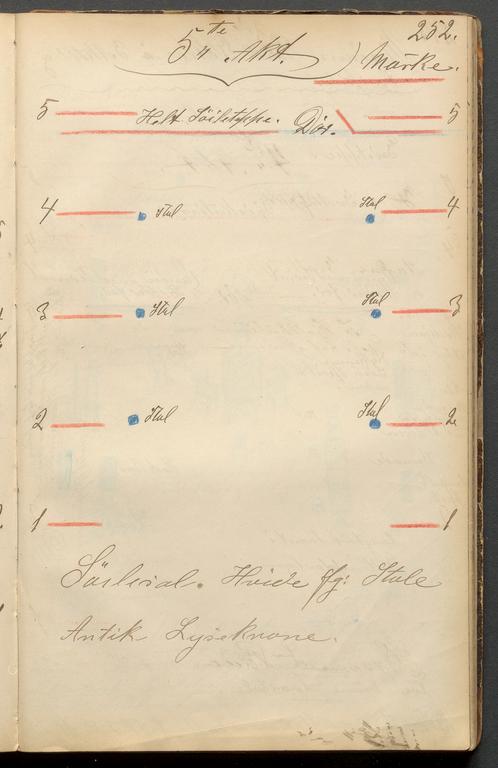 252.
5te Akt.
Mørke.
5 Helt Söiletæppe. Dör. 5
4 Stol Stol 4
3 Stol Stol 3
2 Stol Stol 2
1 1
Söilesal. Hvide fg: Stole
Antik Lysekrone.